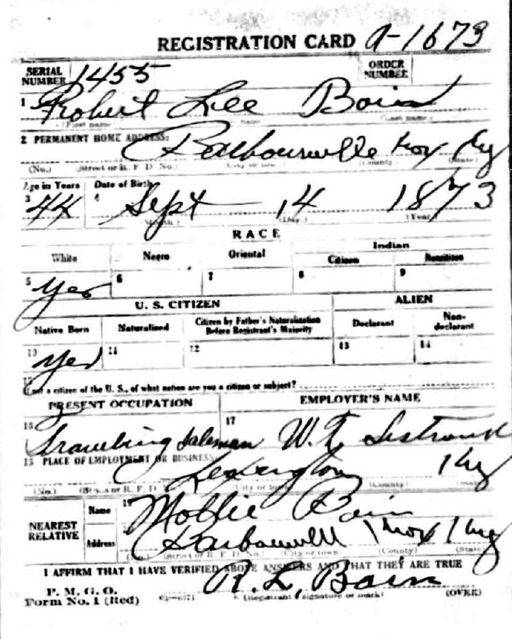 REGISTRATION CARD A-1673
SERIAL NUMBER 1455 ORDER NUMBER
1 Robert Lee Bain
(First name) (Last name)
2 PERMANENT HOME ADDRESS:
Barbourville Knox Ky
(No.) (Street or R. F. D. No.) (City or town) (County) (State)
Age in Years Date of Birth
3 44 4 Sept 14 1873
(Month) (Day) (Year)
RACE
White Negro Oriental Indian
Citizen Noncitizen
5 Yes 6 7 8 9
U. S. CITIZEN ALIEN
Native Born Naturalized Citizen by Father's Naturalization Before Registrant's Majority Declarant Non-declarant
10 Yes 11 12 13 14
If not a citizen of the U. S., of what nation are you a citizen or subject?
PRESENT OCCUPATION EMPLOYER'S NAME
16 Traveling Salesman 17 W. T.
18 PLACE OF EMPLOYMENT OR BUSINESS:
Lexington Ky
(No.) (Street or R. F. D. No.) (City or town) (County) (State)
NEAREST RELATIVE Name 19 Mollie Bain
Address Barbourvill Knox Ky
(No.) (Street or R. F. D. No.) (City or town) (County) (State)
I AFFIRM THAT I HAVE VERIFIED ABOVE ANSWERS AND THAT THEY ARE TRUE
P. M. G. O.
Form No. 1 (Red) R. L. Bain
(Registrant's signature or mark) (OVER)